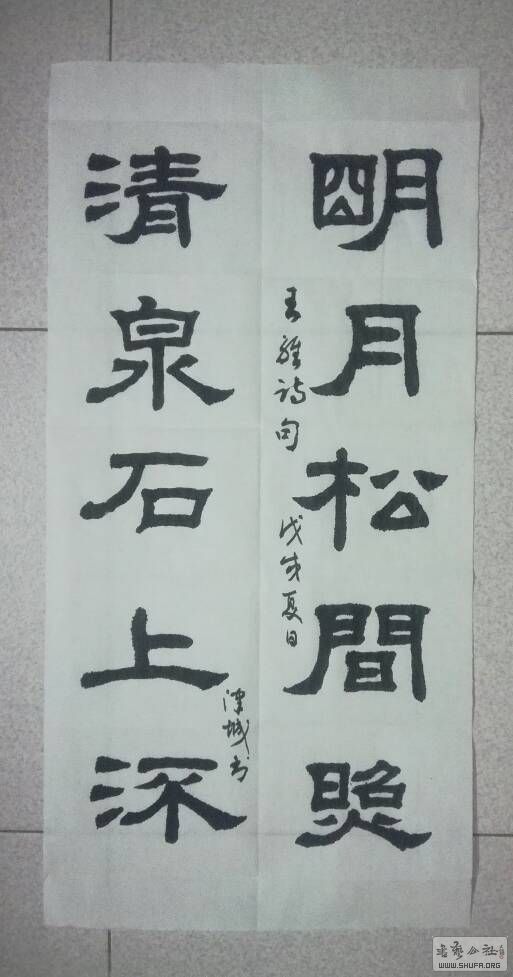 明月松間照
王維诗句 戊戌夏日
清泉石上流
津城书
書藝公社
WWW.SHUFA.ORG